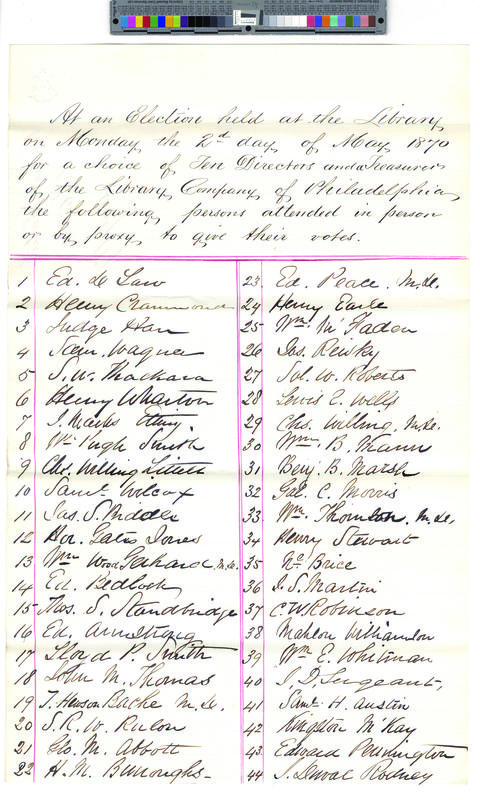 At an Election held at the Library
on Monday the 2d day of May 1870
for a choice of Ten Directors and a Treasurer
of the Library Company of Philadelphia,
the following persons attended in person
or by proxy to give their votes.
1 Ed. de Law
2 Henry Crammond
3 Judge Hare
4 Sam. Wagner
5 S. W. Thackara
6 Henry Wharton
7 J. Marks Etting
8 Wm. Pugh Smith
9 Chs. Willing Littell
10 Saml. Wilcox
11 Jas. S. Biddle
12 Hor. Gates Jones
13 Wm Wood Gerhard, M.D.
14 Ed. Bedlock
15 Thos. S. Standbridge
16 Ed. Armstrong
17 Lloyd P. Smith
18 John M. Thomas
19 T. Hewson Bache M.D.
20 S. R. W. Rulon
21 Geo. M. Abbott
22 H. M. Burroughs
23 Ed. Peace. M.D.
24 Henry Earle
25 Wm. McFaden
26 Jas. Reisky
27 Sol. W. Roberts
28 Lewis E. Wells
29 Chs. Willing, M.D.
30 Wm. B. Mann
31 Benj. B. Marsh
32 Gal. C. Morris
33 Wm. Thornton, M.D.
34 Henry Stewart
35 Brice
36 J. S. Martin
37 C. W. Robinson
38 Mahlon Williamson
39 Wm E. Whitman
40 J. D. Sergeant,
41 Saml. H. Austin
42 Kingston McKay
43 Edward Pennington
44 J. Duval Rodney